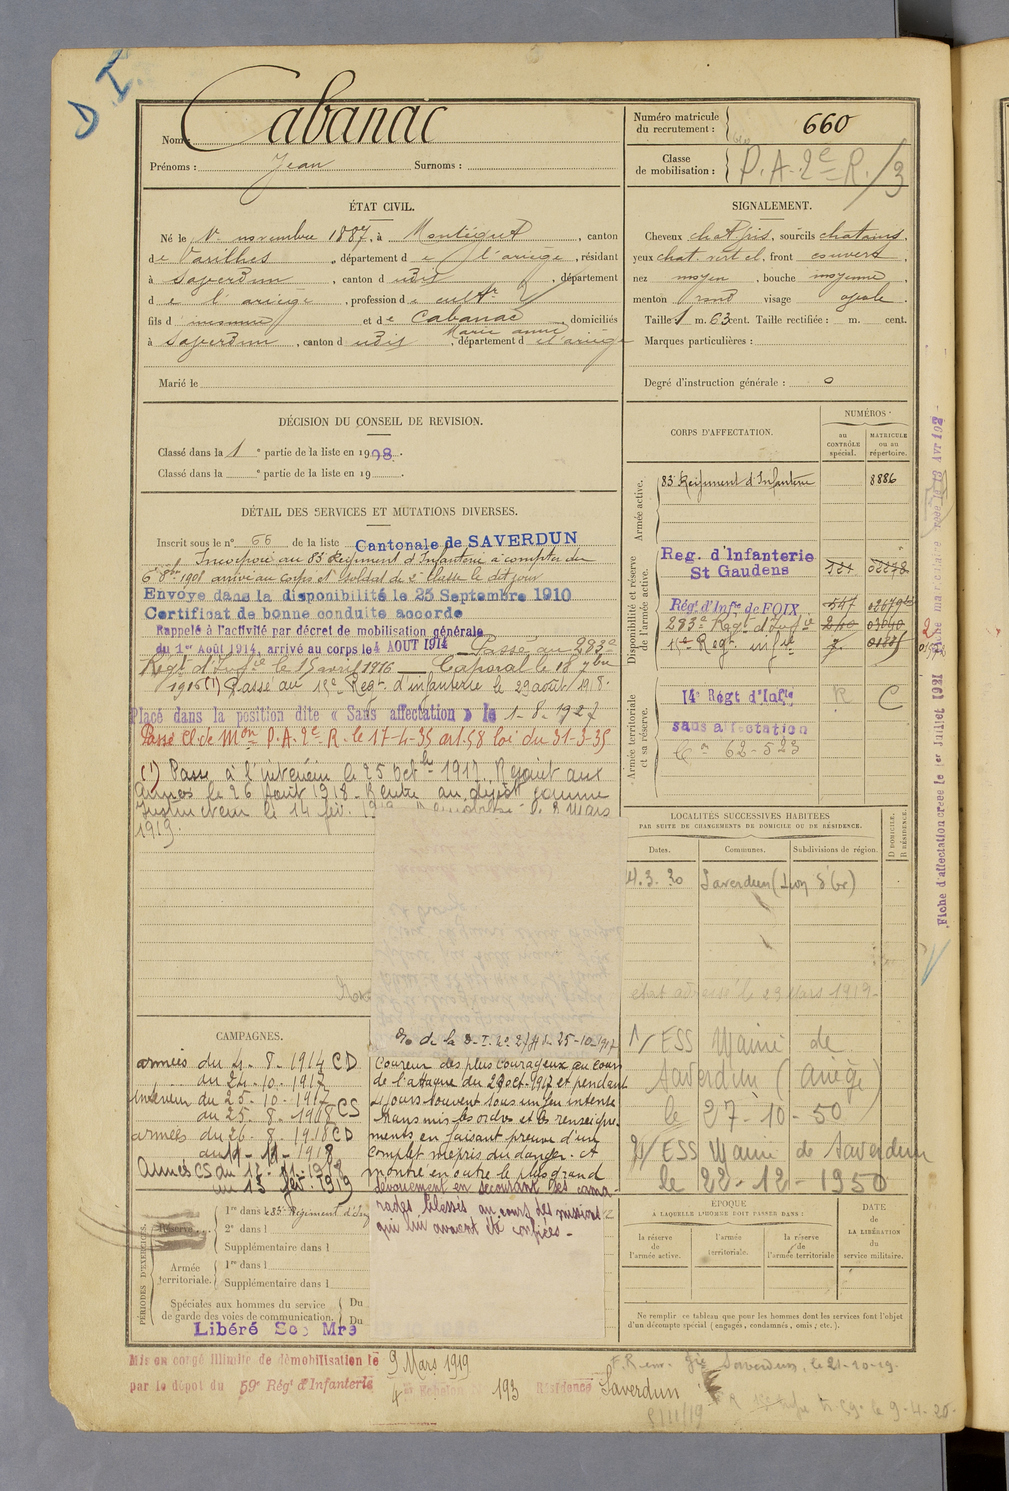 D I
Nom : Cabanac
Prénoms : Jean Surnoms :
Numéro matricule du recrutement : 660
Classe de mobilisation : P. A. 2e R. /3
ÉTAT CIVIL.
Né le 1er novembre 1887, à Montégut, canton
de Varilhes, département de l'ariège, résidant
à Saverdun, canton dudit, département
de l'ariège, profession de cultr
fils d inconnu et de Cabanac Marie anne, domiciliés
à Saverdun, canton dudit, département de l'ariège
Marié le
SIGNALEMENT.
Cheveux chat. , sourcils chatains,
yeux chat. vert cl, front couvert,
nez moyen, bouche moyenne
menton rond visage ovale.
Taille 1 m. 63 cent. Taille rectifiée : m. cent.
Marques particulières :
Degré d'instruction générale : 0
DÉCISION DU CONSEIL DE REVISION.
Classé dans la 1e partie de la liste en 1908.
Classé dans la e partie de la liste en 19 .
DÉTAIL DES SERVICES ET MUTATIONS DIVERSES.
Inscrit sous le n° 66 de la liste Cantonale de SAVERDUN
Incorporé au 83e Régiment d'Infanterie à compter du
6 8bre 1908 arrivé au corps et Soldat de 2e classe le dit jour
Envoyé dans la disponibilité le 25 Septembre 1910
Certificat de bonne conduite accordé
Rappelé à l'activité par décret de mobilisation générale
du 1er Août 1914, arrivé au corps le 4 AOUT 1914 Passé au 283e
Régt d'Infie le 15 avril 1916 Caporal le 18 7bre
1916 (1) Passé au 15e Régt d'infanterie le 29 août 1918.
Placé dans la position dite « Sans affectation » le 1-8-1927
Passé Cl. de Mon P.A. 2e R. le 17-4-35 art. 58 loi du 31-3-35
(1) Passé à l'intérieur le 25 octbre 1917. Rejoint aux
Armées le 26 Août 1918. Rentré au dépôt comme
Instructeur le 14 fév. 1919 8 Mars
1919.
CORPS D'AFFECTATION.
NUMÉROS
au CONTRÔLE spécial.
MATRICULE ou au répertoire.
Armée active.
83e Régiment d'Infanterie 8886
Disponibilité et réserve de l'armée active.
Reg. d'Infanterie
St Gaudens
Régt d'Infie de FOIX 547
283e Régt d'Infie 240
15e Regt infie 7.
Armée territoriale et sa réserve.
14e Régt d'Infie R C
sans affectation
62-523
Fiche d'affectation créée le 1er Juillet 1921
LOCALITÉS SUCCESSIVES HABITÉES
PAR SUITE DE CHANGEMENTS DE DOMICILE OU DE RÉSIDENCE.
Dates. Communes. Subdivisions de région. D DOMICILE. R RÉSIDENCE.
3. 20 Saverdun
état adressé le 29 Mars 1919-
1/ ESS Mairie de
Saverdun (Ariège)
le 27-10-50
2/ ESS Mairie de Saverdun
le 22-12-1950
CAMPAGNES.
armées du 4-8-1914 CD
au 24-10-1917
Intérieur du 25-10-1917 CS
au 25-8-1918
armées du 26-8-1918 CD
au 11-11-1918
Armées CS du 12-11-1918
au 13 fév. 1919
de la D.I. 25-10-1917
Coureur des plus courageux au cours
de l'attaque du 24 oct. 1917 et pendant
4 jours souvent sous un feu intense
transmis les ordres et les renseigne-
ments en faisant preuve d'un
complet mépris du danger. A
montré en outre le plus grand
dévouement en secourant des cama-
rades blessés au cours des missions
qui lui avaient été confiées-
PÉRIODES D'EXERCICES.
Réserve
1re dans le 83e Régiment d'Inf
2e dans l
Supplémentaire dans l
Armée territoriale.
1re dans l
Supplémentaire dans l
Spéciales aux hommes du service de garde des voies de communication. Du
Du
Libéré
ÉPOQUE
A LAQUELLE L'HOMME DOIT PASSER DANS :
la réserve de l'armée active.
l'armée territoriale.
la réserve de l'armée territoriale
DATE de LA LIBÉRATION du service militaire.
Ne remplir ce tableau que pour les hommes dont les services font l'objet
d'un décompte spécial (engagés, condamnés, omis, etc.).
Mis en congé illimité de démobilisation le 9 Mars 1919
par le dépôt du 59e Régt d'Infanterie 4e Echelon N° 193 Résidence Saverdun
Saverdun, le 21-10-19.
le 9-4-20.